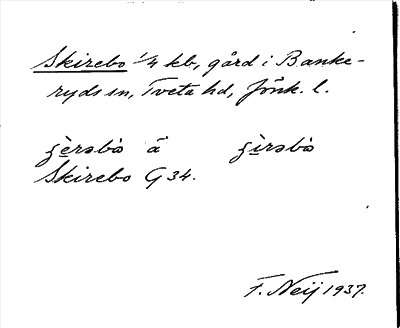 Skirebo 1/4 kb, gård i Banke-
ryds sn, Tveta hd, Jönk. l.
ʒèrəbò å ʒìrəbò
Skirebo G 34.
F. Neij 1937.